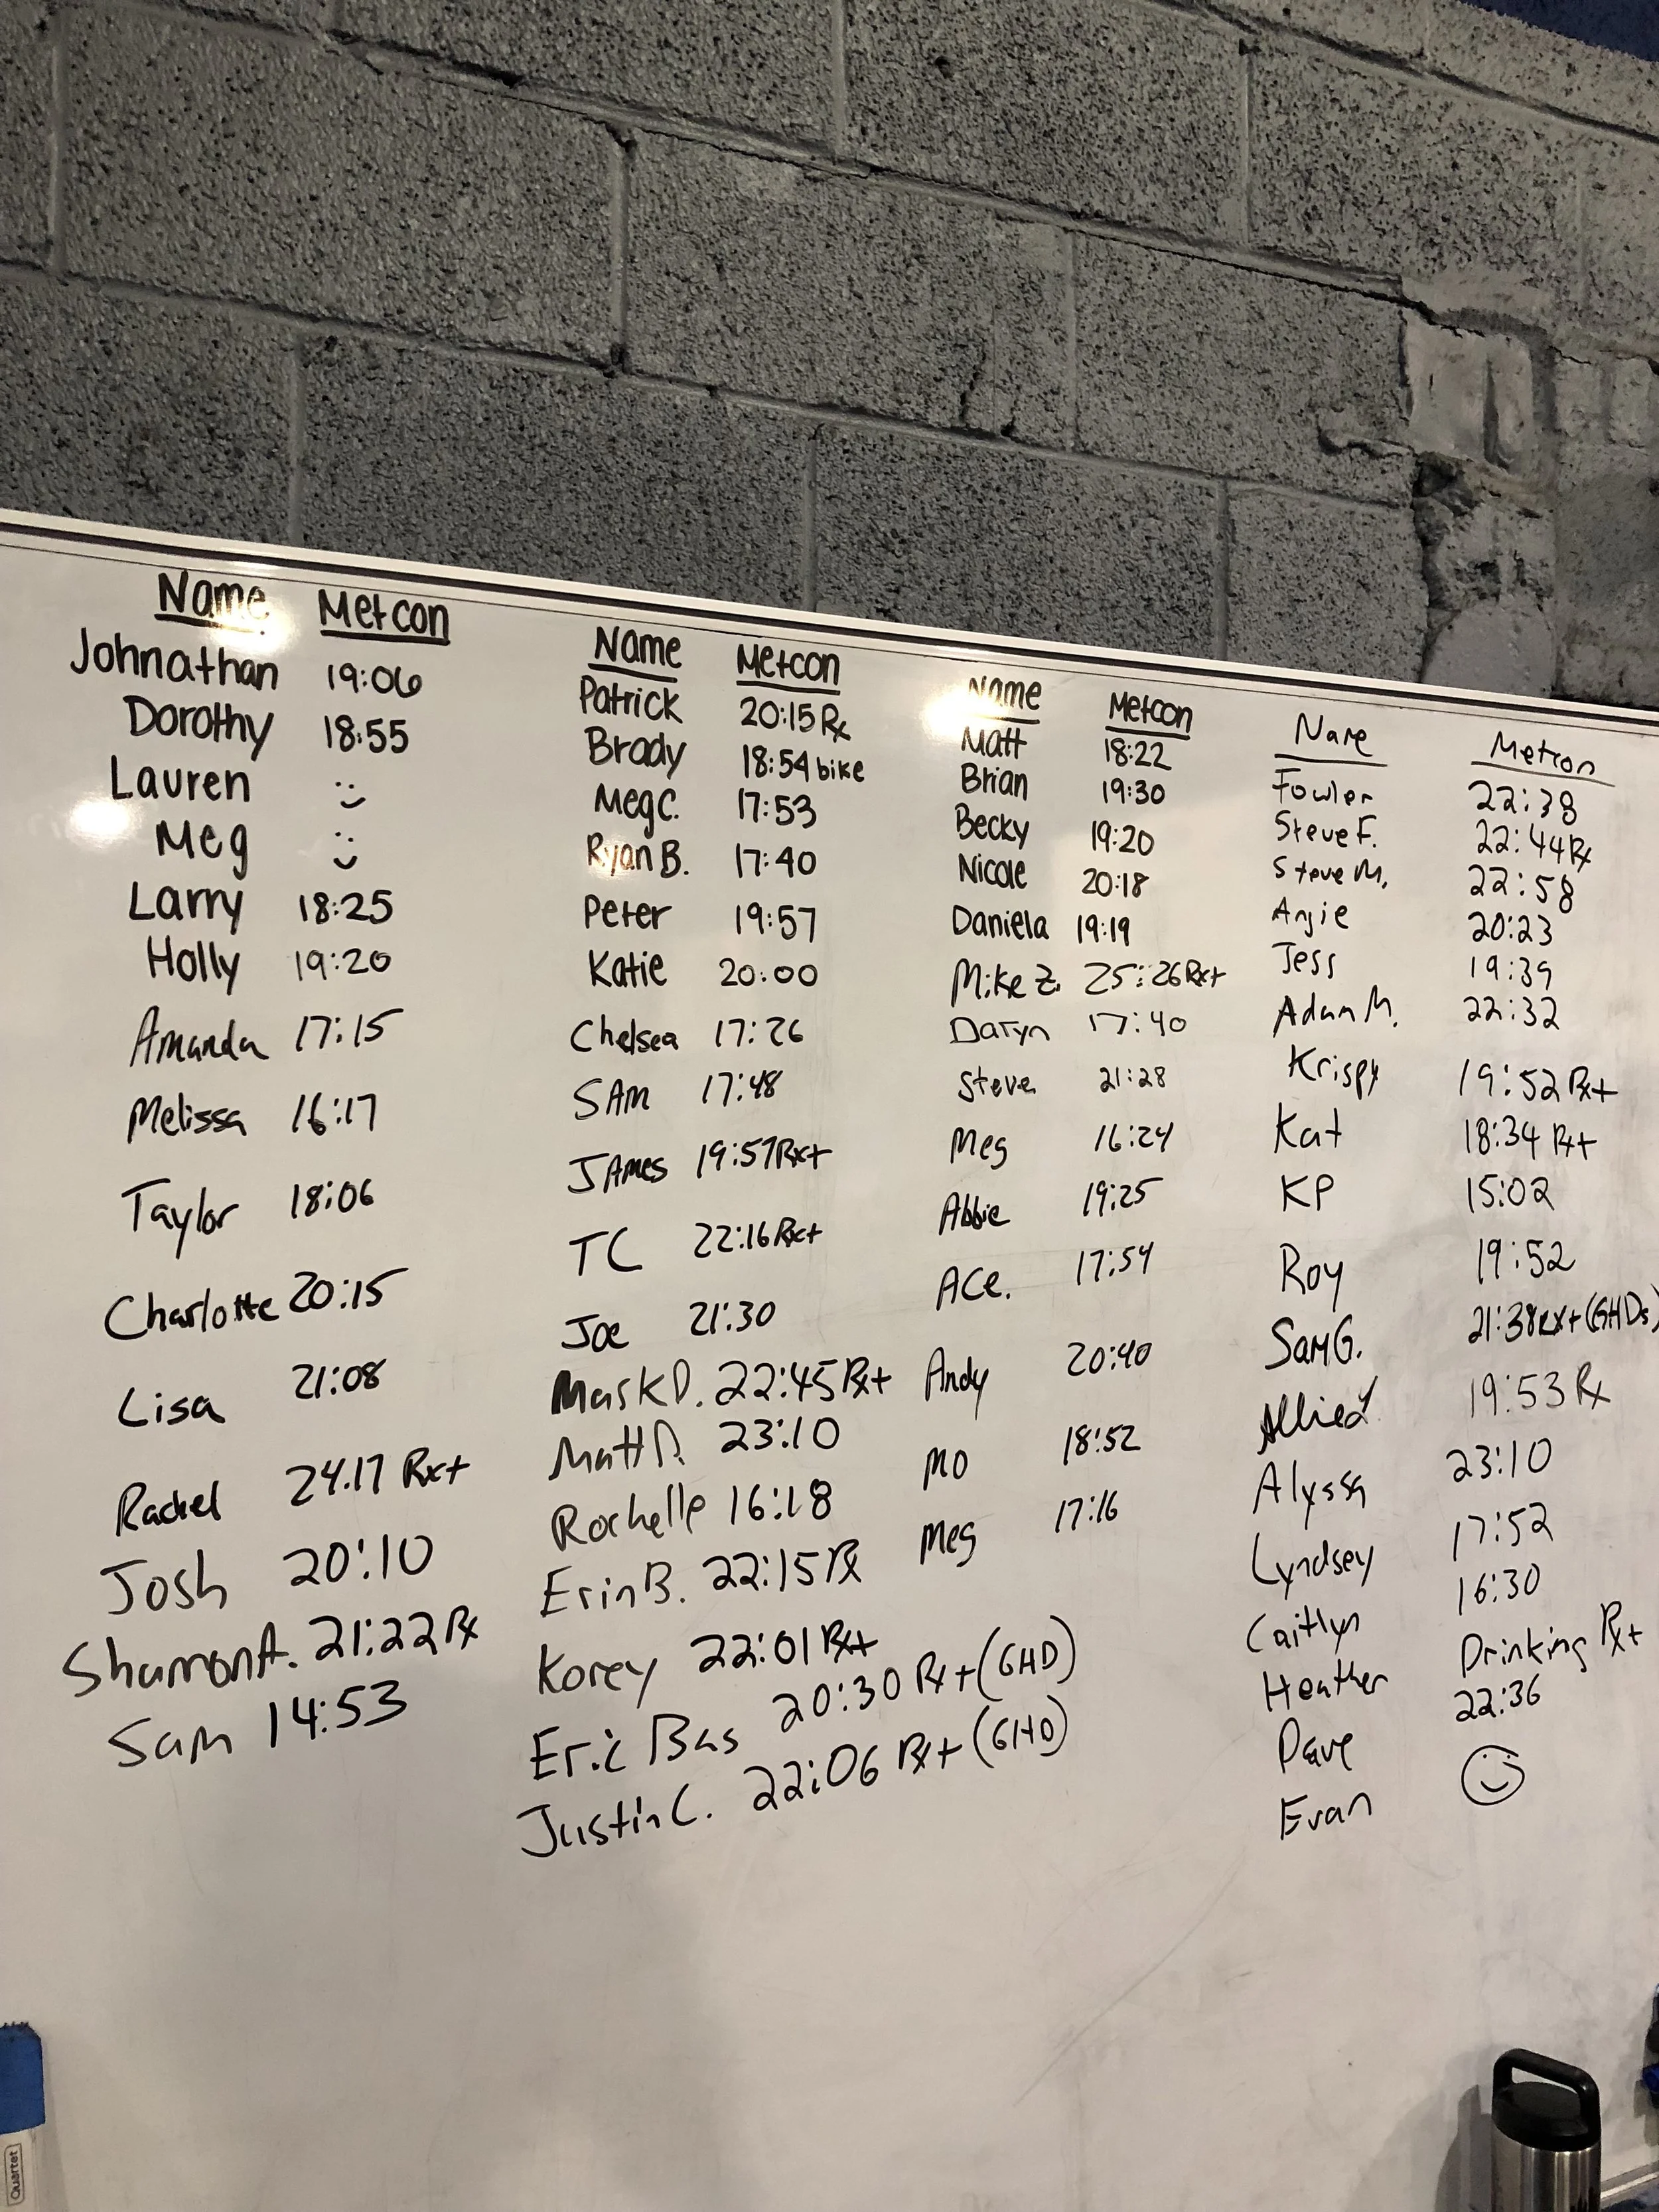 Name Metcon
Johnathan 19:06
Dorothy 18:55
Lauren
Meg
Larry 18:25
Holly 19:20
Amanda 17:15
Melissa 16:17
Taylor 18:06
Charlotte 20:15
Lisa 21:08
Rachel 24.17 Rx+
Josh 20:10
Shannon A. 21:22 Rx
Sam 14:53
Name Metcon
Patrick 20:15 Rx
Brady 18:54 bike
Meg C. 17:53
Ryan B. 17:40
Peter 19:57
Katie 20:00
Chelsea 17:26
SAM 17:48
JAMES 19:57 Rx+
TC 22:16 Rx+
Joe 21:30
Mark D. 22:45 Rx+
Matt 23:10
Rochelle 16:18
Erin B. 22:15 Rx
Korey 22:01 Rx+
Eric Bas 20:30 Rx+ (GHD)
Justin C. 22:06 Rx+ (GHD)
Name Metcon
Matt 18:22
Brian 19:30
Becky 19:20
Nicole 20:18
Daniela 19:19
Mike Z. 25:26 Rx+
Daryn 17:40
Steve 21:28
Meg 16:24
Abbie 19:25
ACe. 17:54
Andy 20:40
MO 18:52
Meg 17:16
Name Metcon
Fowler 22:38
Steve F. 22:44 Rx
Steve M. 22:58
Angie 20:23
Jess 19:39
Adam M. 22:32
Krispy 19:52 Rx+
Kat 18:34 Rx+
KP 15:02
Roy 19:52
Sam G. 21:38 Rx+ (GHDs)
19:53 Rx
Alyssa 23:10
Lyndsey 17:52
Caitlyn 16:30
Heather Drinking Rx+
Dave 22:36
Evan
Quartet